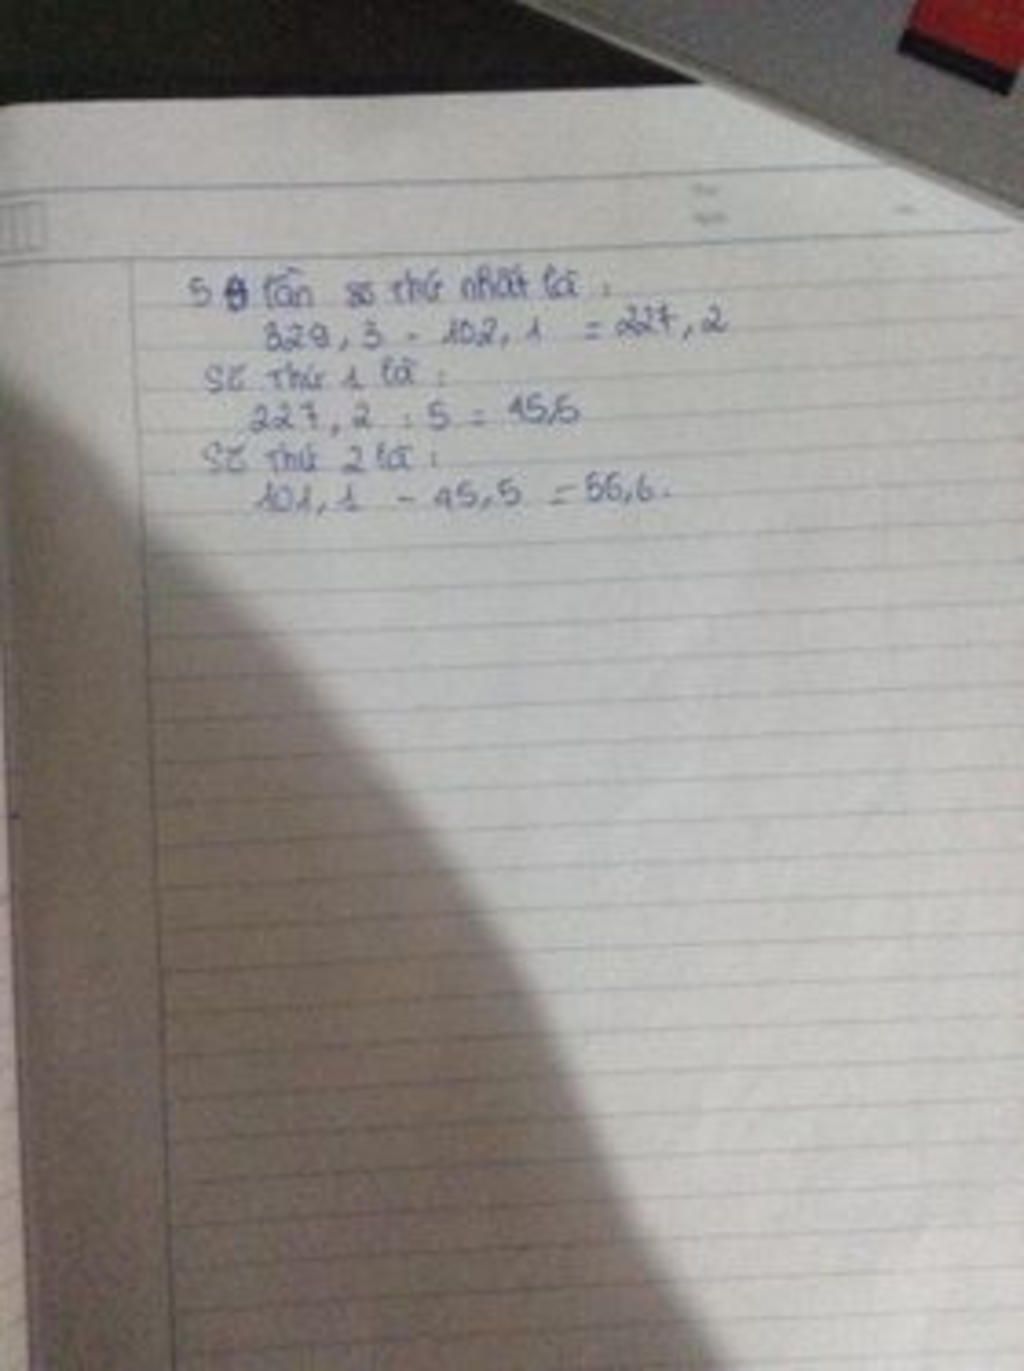 5 lần số thứ nhất là :
329,3 - 102,1 = 227,2
Số thứ 1 là :
227,2 : 5 = 45,5
Số thứ 2 là :
101,1 - 45,5 = 55,6.